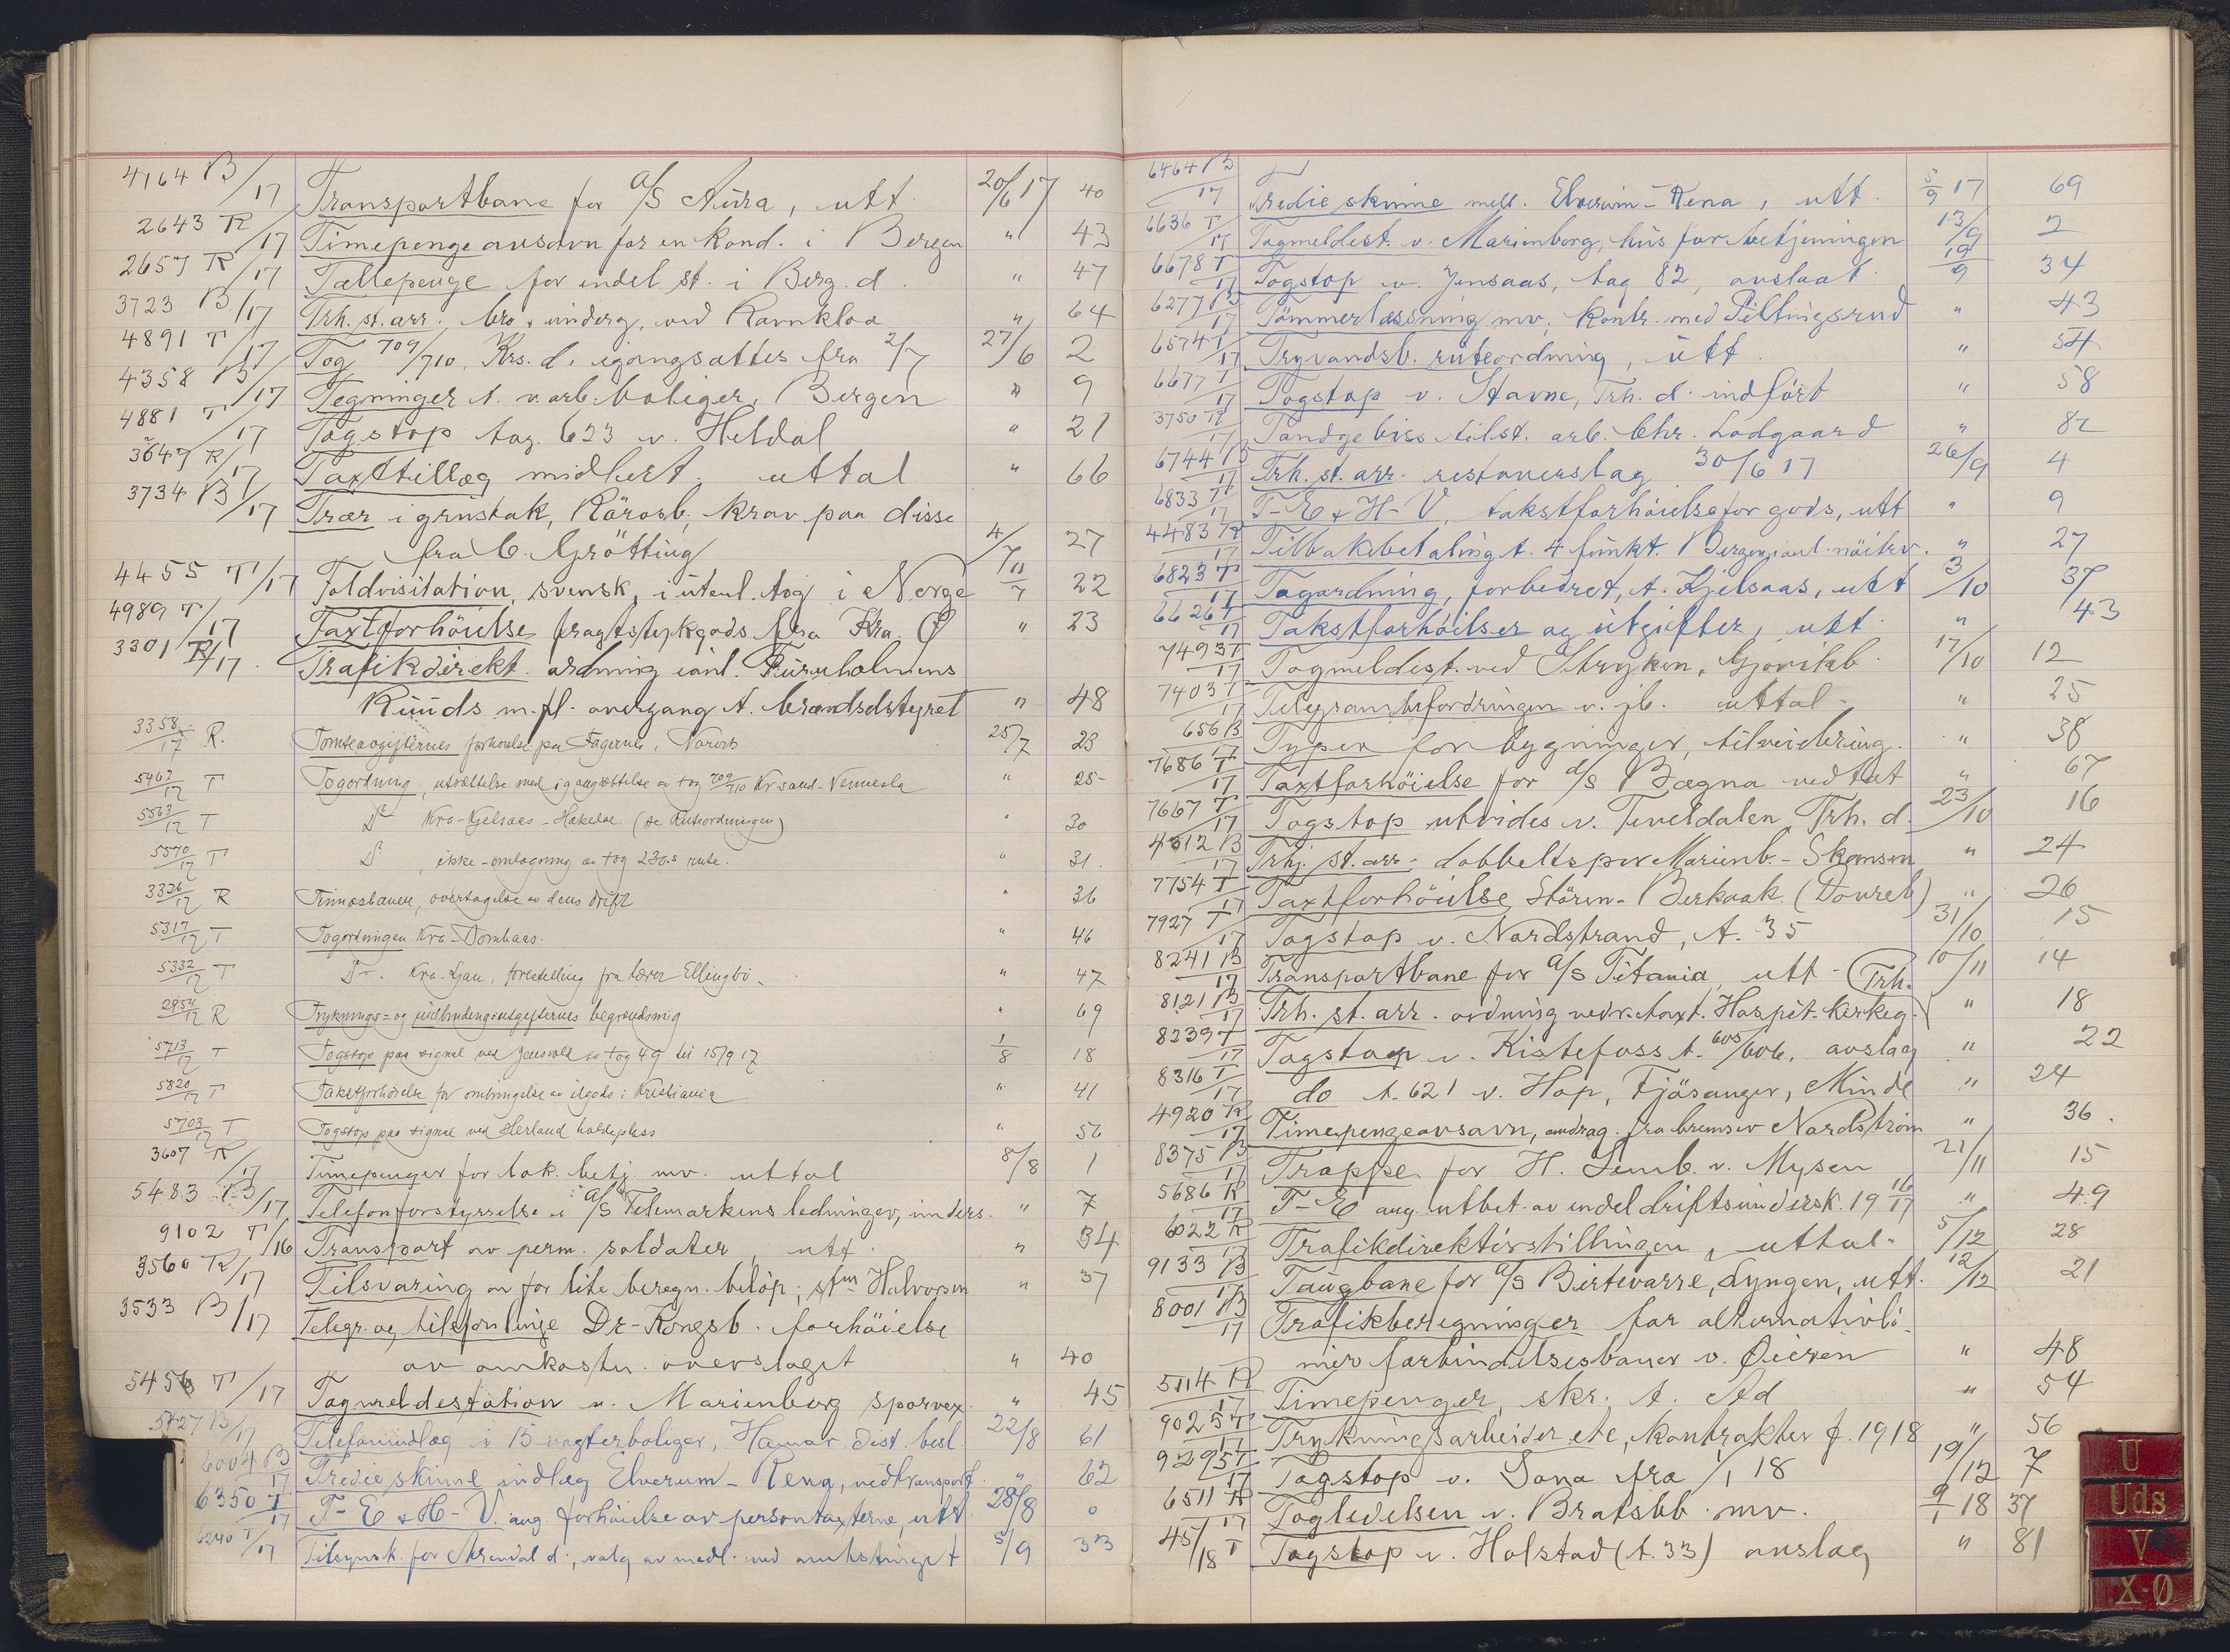 4164 B/17 Transportbane for A/S Aura, utt. 20/6 17 40
2643 R/17 Timepengeavsavn for en kond. i Bergen " 43
2657 R/17 Tællepenge for endel st. i Berg. d. " 47
3723 B/17 Trh. st. arr. bro & underg. ved Ravnkloa " 64
4891 T/17 Tog 709/710, Krs. d. igangsættes fra 2/7 27/6 2
4358 B/17 Tegninger t. v. arb. boliger, Bergen " 9
4881 T/17 Togstop tog 623 v. Heldal " 21
3647 R/17 Taxttillæg midlert. uttal " 66
3734 B/17 Trær i grustak, Rörosb. krav paa disse
fra C. Grötting 4/7 27
4455 T/17 Toldvisitation, svensk, i utenl. tog i Norge 11/7 22
4989 T/17 Taxtforhöielse fragtstykgods fra Kra. Ø " 23
3301 R/17 Trafikdirekt. ordning i anl. Furuholmens
Ruuds m. fl. overgang t. brændselstyret " 48
3358/17 R. Tomteavgifternes forhøielse paa Fagernes, Narvik 25/7 23
5467/17 T Togordning, utsættelse med igangsættelse av tog 709/710 Kr.sand-Vennesla " 25
5563/17 T Do Kra-Kjelsaas-Hakedal (se Ruteordningen) " 30
5570/17 T Do, ikke-omlægning av tog 230s rute. " 31.
3326/17 R Tinnosbanen, overtagelse av dens drift " 36
5317/17 T Togordningen Kra-Dombaas. " 46
5332/17 T Do. Kra-Ljan, forestilling fra lærer Ellingbø. " 47
2954/17 R Tryknings= og indbindingsutgifternes begrændsning " 69
5713/17 T Togstop paa signal ved Jensvold av tog 49 til 15/9 17 1/8 18
5820/17 T Takstforhøielse for ombringelse av ilgods i Kristiania " 41
5703/17 T Togstop paa signal ved Herland holdeplass " 56
3607 R/17 Timepenger for lok. betj. mv. uttal 8/8 1
5483 B/17 Telefonforstyrrelse i A/S Telemarkens ledninger, unders. " 7
9102 T/16 Transport av perm. soldater, utt. " 34
3560 R/17 Tilsvaring av for lite beregn. belöp; stm Halvorsen " 37
3533 B/17 Telegr. og telefonlinje Dr-Kongsb. forhöielse
av omkostn. overslaget " 40
5456 T/17 Togmeldestation v. Marienborg sporvex. " 45
5727 B/17 Telefonindlæg i 15 vogterboliger, Hamar dist. besl. 22/8 61
6004 B/17 Tredie skinne indlæg Elverum-Rena, vedtransport. " 62
6350 T/17 T-E & H-V. ang. forhöielse av persontaxterne, utt. 28/8 0
6240 T/17 Tilsynsk. for Arendal d., valg av medl. ved amtstinget 5/9 33
6464 B/17 Tredie skinne mell. Elverum-Rena, utt. 5/9 17 69
6636 T/17 Togmeldest. v. Marienborg, hus for betjeningen 13/9 2
6678 T/17 Togstop v. Jensaas, tog 82, avslaat 19/9 34
6277 B/17 Tömmerlæssning mv, kontr. med Piltingsrud " 43
6574 T/17 Tryvandsb. ruteordning, utt. " 54
6677 T/17 Togstop v. Stavne, Trh. d. indfört " 58
3750 R/17 Tandgebiss tilst. arb. Chr. Lodgaard " 82
6744 B/17 Trh. st. arr. restoverslag 30/6 17 26/9 4
6833 T/17 T-E & H-V, takstforhöielse for gods, utt " 9
4483 R/17 Tilbakebetaling t. 4 funkt. Bergen, i anl. nöitrv. " 27
6823 T/17 Togordning, forbedret, t. Kjelsaas, utt 3/10 37
6626 T/17 Takstforhöielser og utgifter, utt. " 43
7493 T/17 Togmeldest. ved Stryken, Gjøvikb. 17/10 12
7403 T/17 Telegrambefordringen v. jb. uttal. " 25
656 B Typer for bygninger, tilveiebring. " 38
7686 T/17 Taxtforhöielse for A/S Bægna vedtat " 67
7667 T/17 Togstop utvides v. Teveldalen, Trh. d. 23/10 16
4312 B/17 Trhj. st. arr. dobbeltspor Marienb.-Skansen " 24
7754 T/17 Taxtforhöielse Stören-Berkaak (Dovreb) " 26
7927 T/17 Togstop v. Nordstrand, t. 35 31/10 15
8241 B/17 Transportbane for A/S Titania, utt. 10/11 14
8121 B/17 Trh. st. arr. ordning vedr. taxt. Hospit. kirkeg. (Trh. " 18
8239 T/17 Togstop v. Kistefoss t. 605/606, avslag " 22
8316 T/17 do t. 621 v. Hop, Fjösanger, Minde " 24
4920 R/17 Timepengeavsavn, andrag. fra bremser Nordström " 36.
8375 B/17 Trappe for H. Lemb. v. Mysen 21/11 15
5686 R/17 T-E ang. utbet. av endel driftsundersk. 19 16/17 " 49
6022 R/17 Trafikdirektörstillingen, uttal. 5/12 28
9133 B/17 Taugbane for A/S Birtevarre, Lyngen, utt. 12/12 21
8001 B/17 Trafikberegninger for alternativli-
nier forbindelsesbaner v. Øieren " 48
5114 R/17 Timepenger, skr. t. Ad " 54
9025 T/17 Trykningsarbeider etc, kontrakter f. 1918 " 56
9295 T/17 Togstop v. Sona fra 1/1 18 19/12 7
6511 R/17 Togledelsen v. Bratsbb. mv. 9/1 18 37
45/18 T Togstop v. Holstad (t. 33) avslag " 81
U
Uds
V
X-Ø